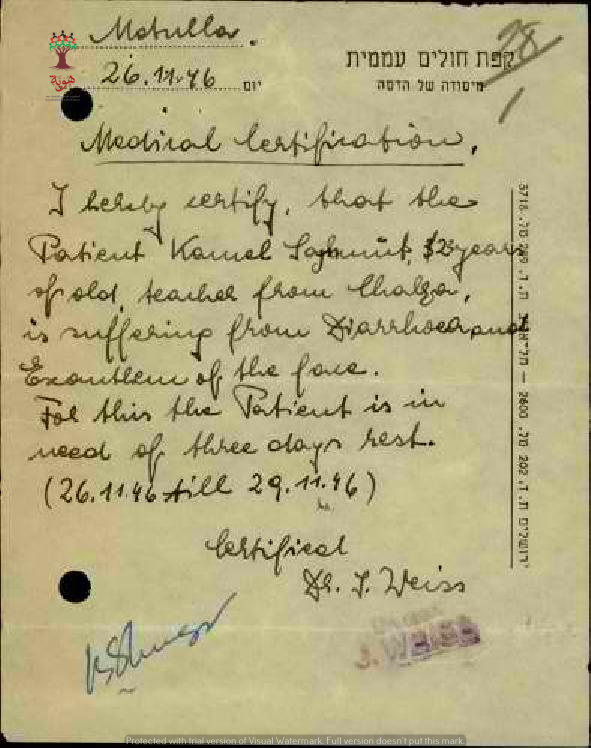 Metulla.
28
קפת חולים עממית
מיסודה של הדסה
26.11.46 יום
هوية
Medical Certification.
I hereby certify, that the
Patient Kamel years
of old, teacher from
is suffering from Diarrhoea and
Exanthem of the face.
For this the Patient is in
need of three days rest.
(26.11.46 till 29.11.46)
Certified
Dr. J. Weiss
J. WEISS
ירושלים ת.ד. 202, טל. 2600 — תל־אביב ת.ד. טל. 5718
Protected with trial version of Visual Watermark. Full version doesn't put this mark.